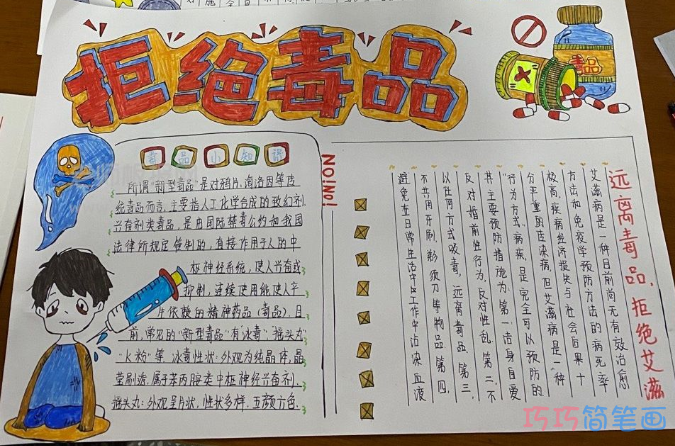 拒绝毒品
毒品
毒品小知识
所谓"新型毒品"是对鸦片、海洛因等传
统毒品而言,主要指人工化学合成的致幻剂、
兴奋剂类毒品,是由国际禁毒公约和我国
法律所规定管制的,直接作用于人的中
枢神经系统,使人兴奋或
抑制,连续使用能使人产
生依赖的精神药品(毒品)。目
前,常见的"新型毒品"有"冰毒""摇头丸"
"K粉"等 冰毒性状:外观为纯晶体,晶
莹剔透,属于苯丙胺类中枢神经兴奋剂。
摇头丸:外观呈片状,性状多样,五颜六色。
NO!NO!
远离毒品,拒绝艾滋
艾滋病是一种目前尚无有效治愈
方法和免疫学预防方法的病死率
极高疾病,经济损失与社会危害十
分严重的传染病,但艾滋病是一种
"行为方式"疾病,是完全可以预防的
其主要预防措施为:第一、洁身自爱
反对婚前性行为,反对性乱。第二、不
以任何方式吸毒,远离毒品。第三、
不共用牙刷、剃须刀等物品。第四、
避免在日常生活中和工作中沾染血液
巧巧简笔画